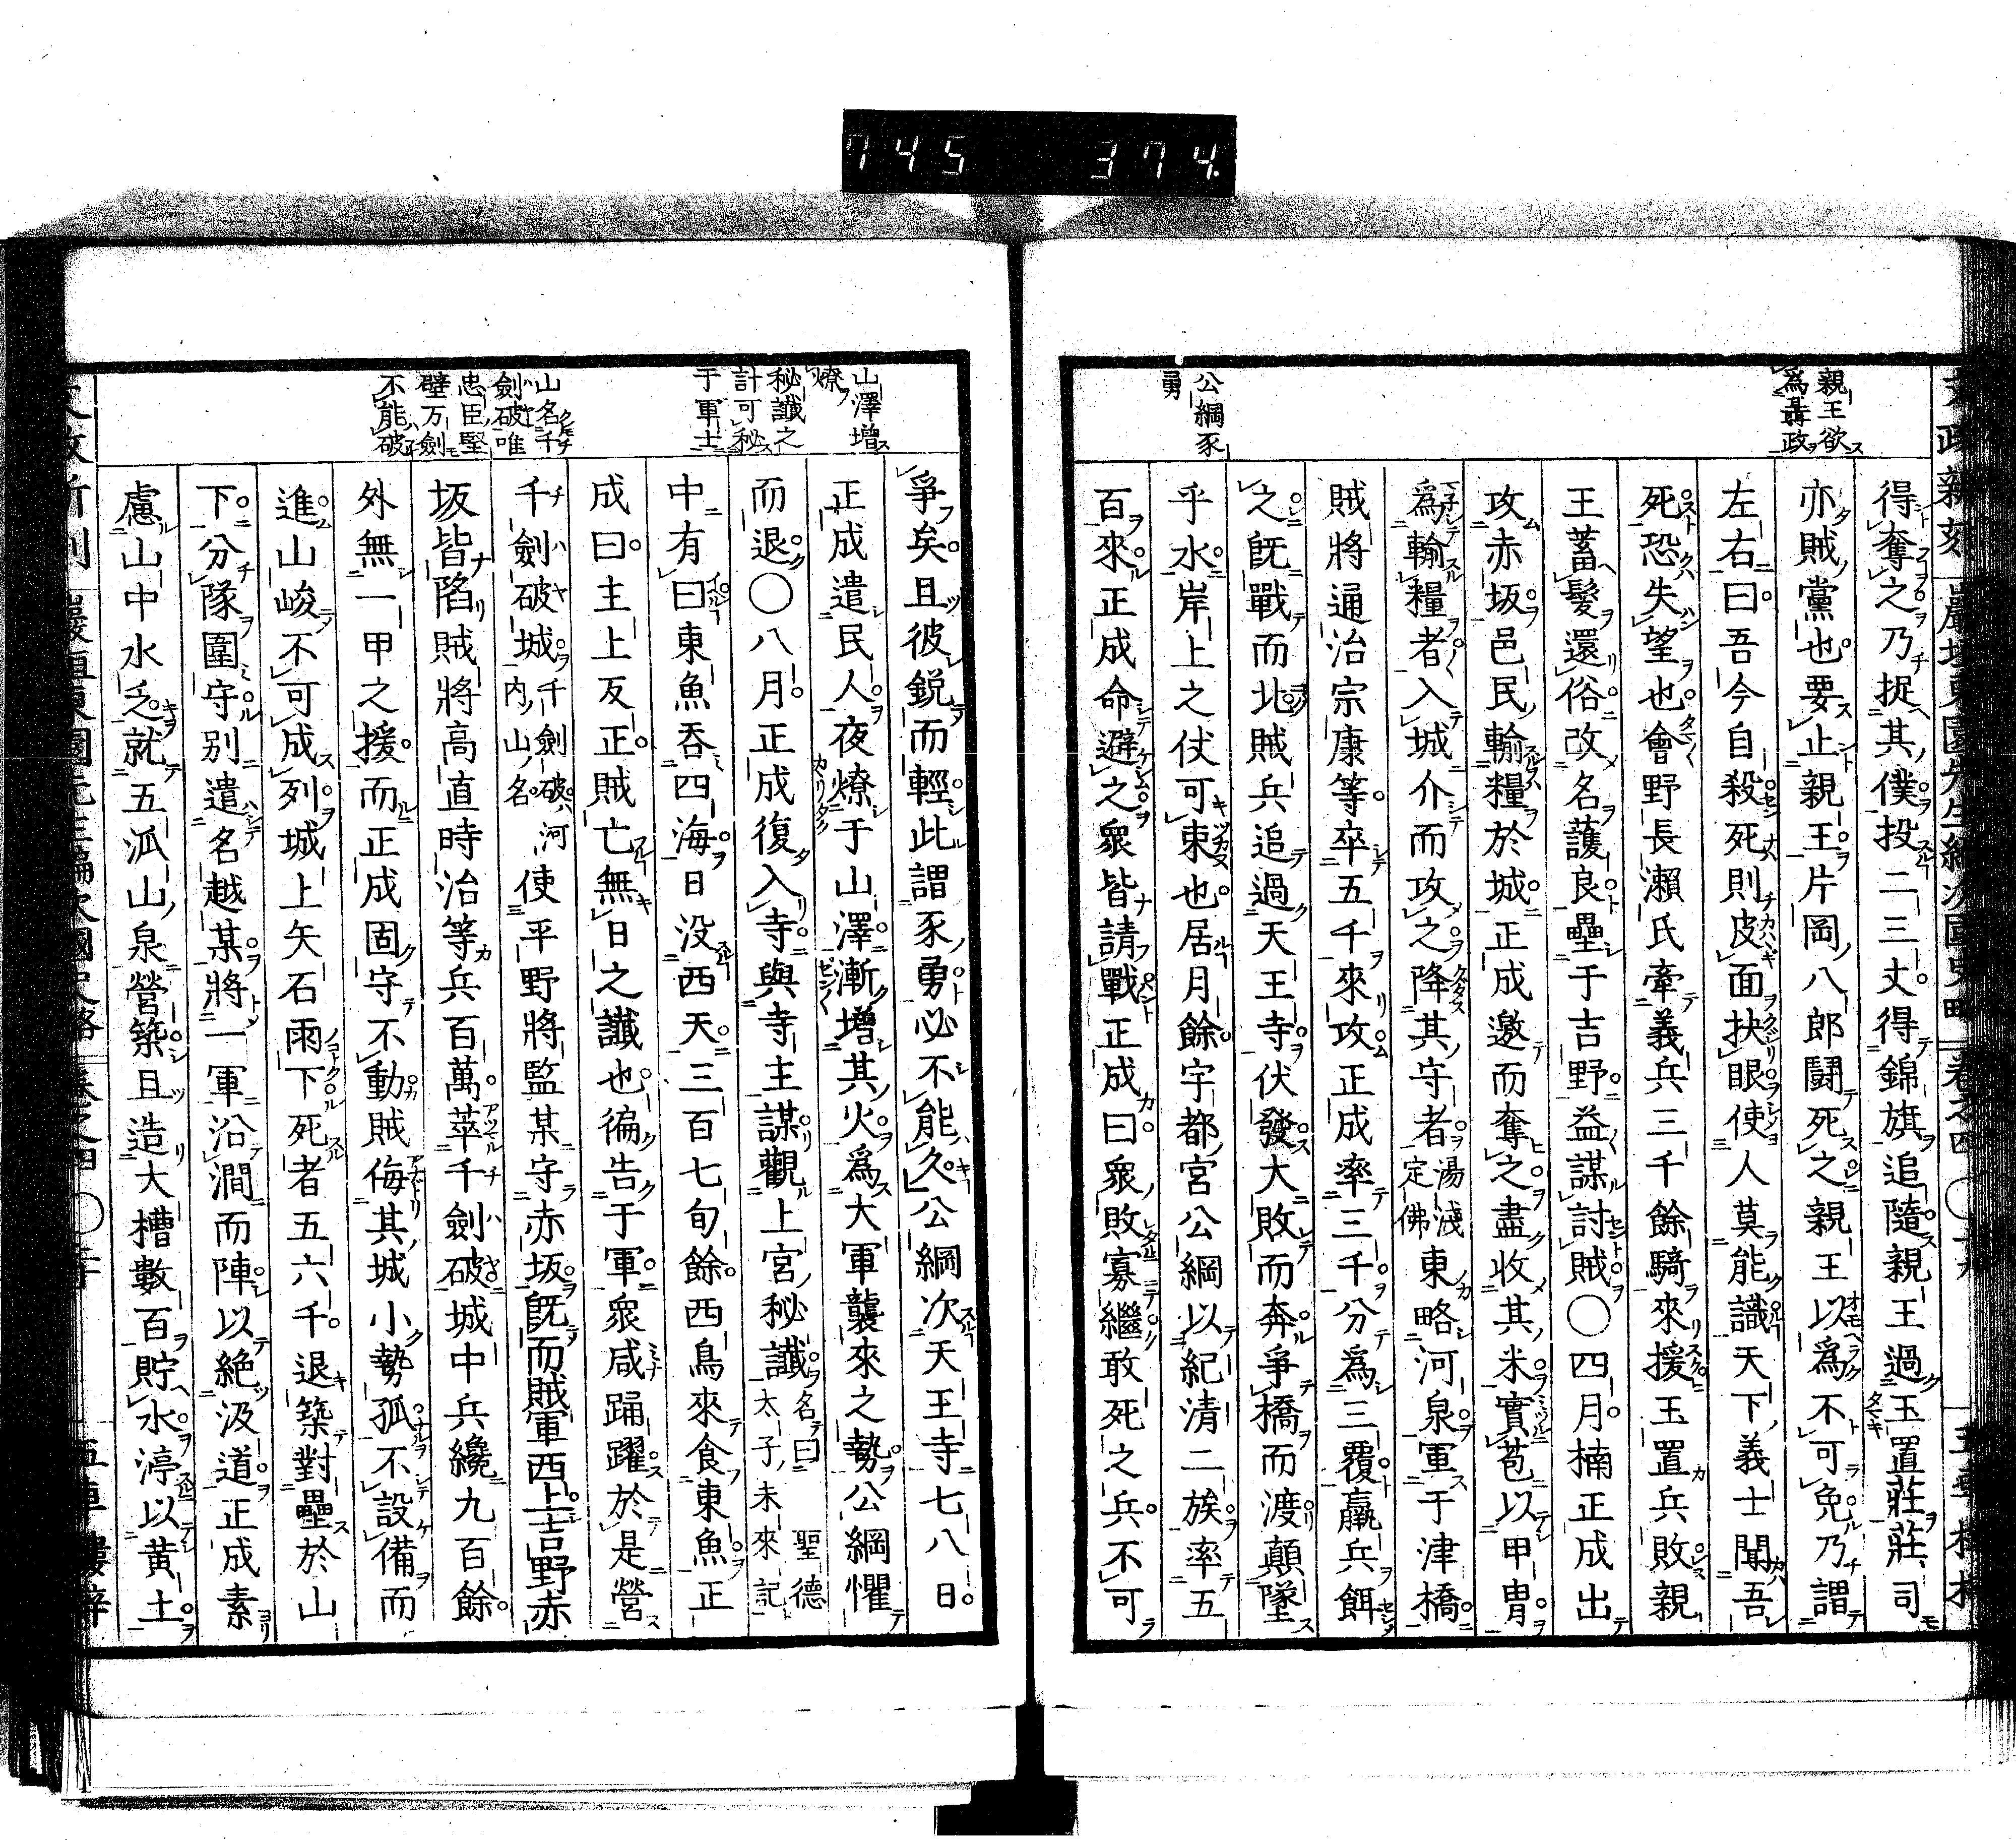 745 374.
親王欲
爲聶政
公綱豕
勇
得奪之乃捉其僕投二三丈得錦旗追隨親王過玉置莊莊司
亦賊黨也要止親王片岡八郎鬪死之親王以爲不可免乃謂
左右曰吾今自殺死則皮面抉眼使人莫能識天下義士聞吾
死恐失望也會野長瀬氏牽義兵三千餘騎來援玉置兵敗親
王蓄髮還俗改名護良壘于吉野益謀討賊〇四月楠正成出
攻赤坂邑民輸糧於城正成邀而奪之盡收其米實苞以甲冑
爲輸糧者入城介而攻之降其守者湯淺定佛東略河泉軍于津橋
賊將通治宗康等卒五千來攻正成率三千分爲三覆羸兵餌
之既戰而北賊兵追過天王寺伏發大敗而奔爭橋而渡顛墜
乎水岸上之仗可束也居月餘宇都宮公綱以紀清二族率五
百來正成命避之衆皆請戰正成曰衆敗寡繼敢死之兵不可
山澤增
燎
秘讖之
計可秘
于軍士
山名千
劍破唯
忠臣堅
壁万劍
不能破
爭矣且彼鋭而輕此謂豕勇必不能久公綱次天王寺七八日
正成遣民人夜燎于山澤漸増其火爲大軍襲來之勢公綱懼
而退〇八月正成復入寺與寺主謀觀上宮秘讖名曰聖德太子未來記
中有曰東魚吞四海日没西天三百七旬餘西鳥來食東魚正
成曰主上反正賊亡無日之讖也徧告于軍衆咸踊躍於是營
千劍破城千劍破河内山名使平野將監某守赤坂既而賊軍西上吉野赤
坂皆陷賊將高直時治等兵百萬萃千劍破城中兵纔九百餘
外無一甲之援而正成固守不動賊侮其城小勢孤不設備而
進山峻不可成列城上矢石雨下死者五六千退築對壘於山
下分隊圍守别遣名越某將一軍沿澗而陣以絶汲道正成素
慮山中水乏就五泒山泉營築且造大槽數百貯水渟以黄土